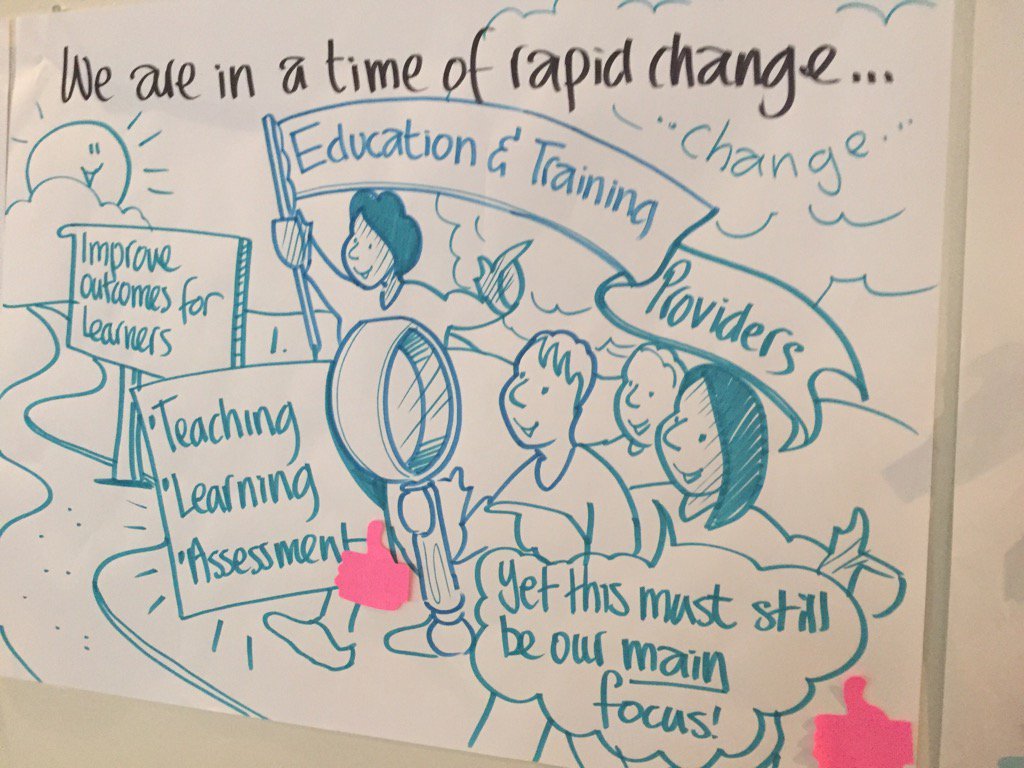 We are in a time of rapid change...
"Change..."
Education & Training
Providers
Improve
outcomes for
Learners
1.
• Teaching
• Learning
• Assessment
Yet this must still
be our main
focus!